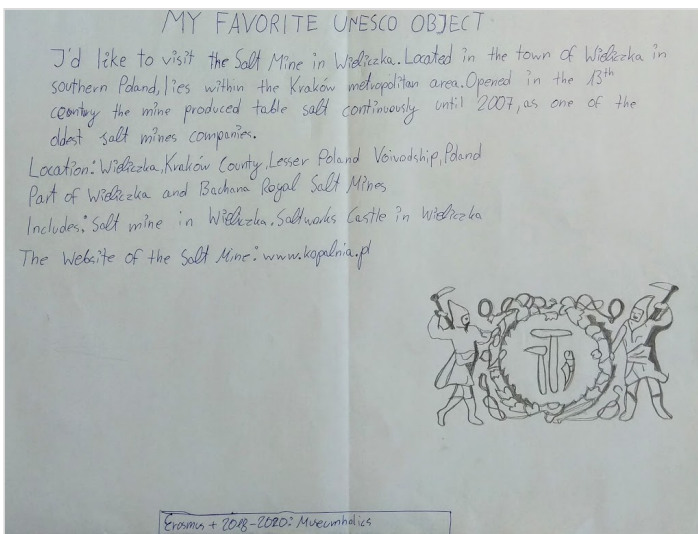 MY FAVORITE UNESCO OBJECT
I'd like to visit the Salt Mine in Wieliczka. Located in the town of Wieliczka in
southern Poland, lies within the Kraków metropolitan area. Opened in the 13th
country the mine produced table salt continuously until 2007, as one of the
oldest salt mines companies.
Location: Wieliczka, Kraków County, Lesser Poland Voivodship, Poland
Part of Wieliczka and Bachana Royal Salt Mines
Includes: Salt mine in Wieliczka. Saltworks Castle in Wieliczka
The Website of the Salt Mine: www.kopalnia.pl
Erasmus + 2018-2020: Museumholics